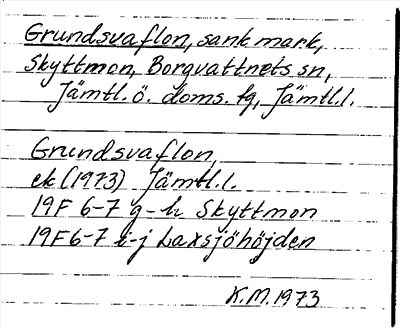 Grundsvaflon, sank mark,
Skyttmon, Borgvattnets sn,
Jämtl. ö. doms. tg, Jämtl. l.
Grundsvaflon,
ek (1973) Jämtl. l.
19F 6-7 g-h Skyttmon
19F 6-7 i-j Laxsjöhöjden
K.M. 1973